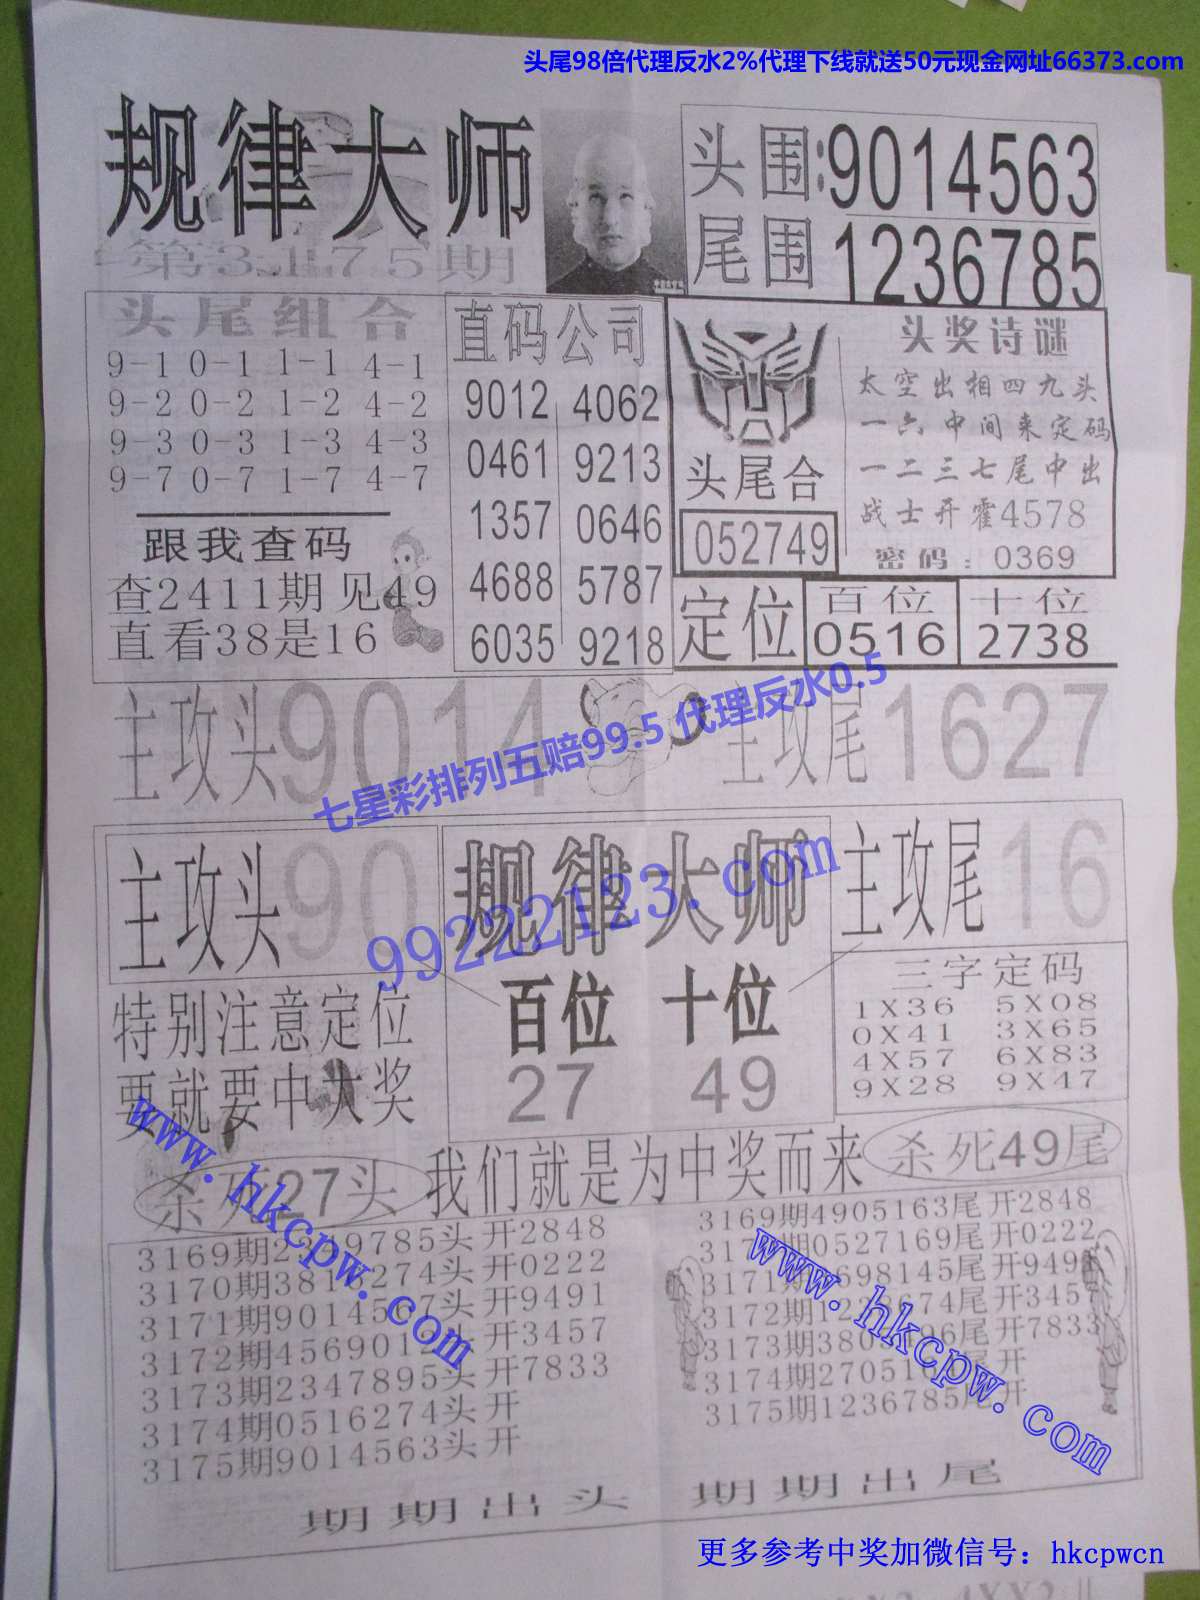 头尾98倍代理反水2%代理下线就送50元现金网址66373.com
规律大师
第3175期
头围:9014563
尾围1236785
头尾组合
9-1 0-1 1-1 4-1
9-2 0-2 1-2 4-2
9-3 0-3 1-3 4-3
9-7 0-7 1-7 4-7
跟我查码
查2411期见49
直看38是16
直码公司
9012 4062
0461 9213
1357 0646
4688 5787
6035 9218
头尾合
052749
头奖诗谜
太空出相四九头
一六中间来定码
一二三七尾中出
战士开霍4578
密码:0369
定位
百位
0516
十位
2738
主攻头9014
主攻尾1627
七星彩排列五赔99.5 代理反水0.5
主攻头90
规律大师
主攻尾16
99222123.com
百位 十位
27 49
特别注意定位
要就要中大奖
三字定码
1X36 5X08
0X41 3X65
4X57 6X83
9X28 9X47
www.hkcpw.com
杀死27头
我们就是为中奖而来
杀死49尾
3169期2 9785头开2848
3170期381 274头开0222
3171期9014567头开9491
3172期456901 头开3457
3173期2347895头开7833
3174期0516274头开
3175期9014563头开
3169期4905163尾开2848
317 期0527169尾开0222
3171 698145尾开949
3172期12 674尾开345
3173期380 96尾开7833
3174期270516 尾开
3175期1236785尾开
www.hkcpw.com
期期出头 期期出尾
更多参考中奖加微信号：hkcpwcn